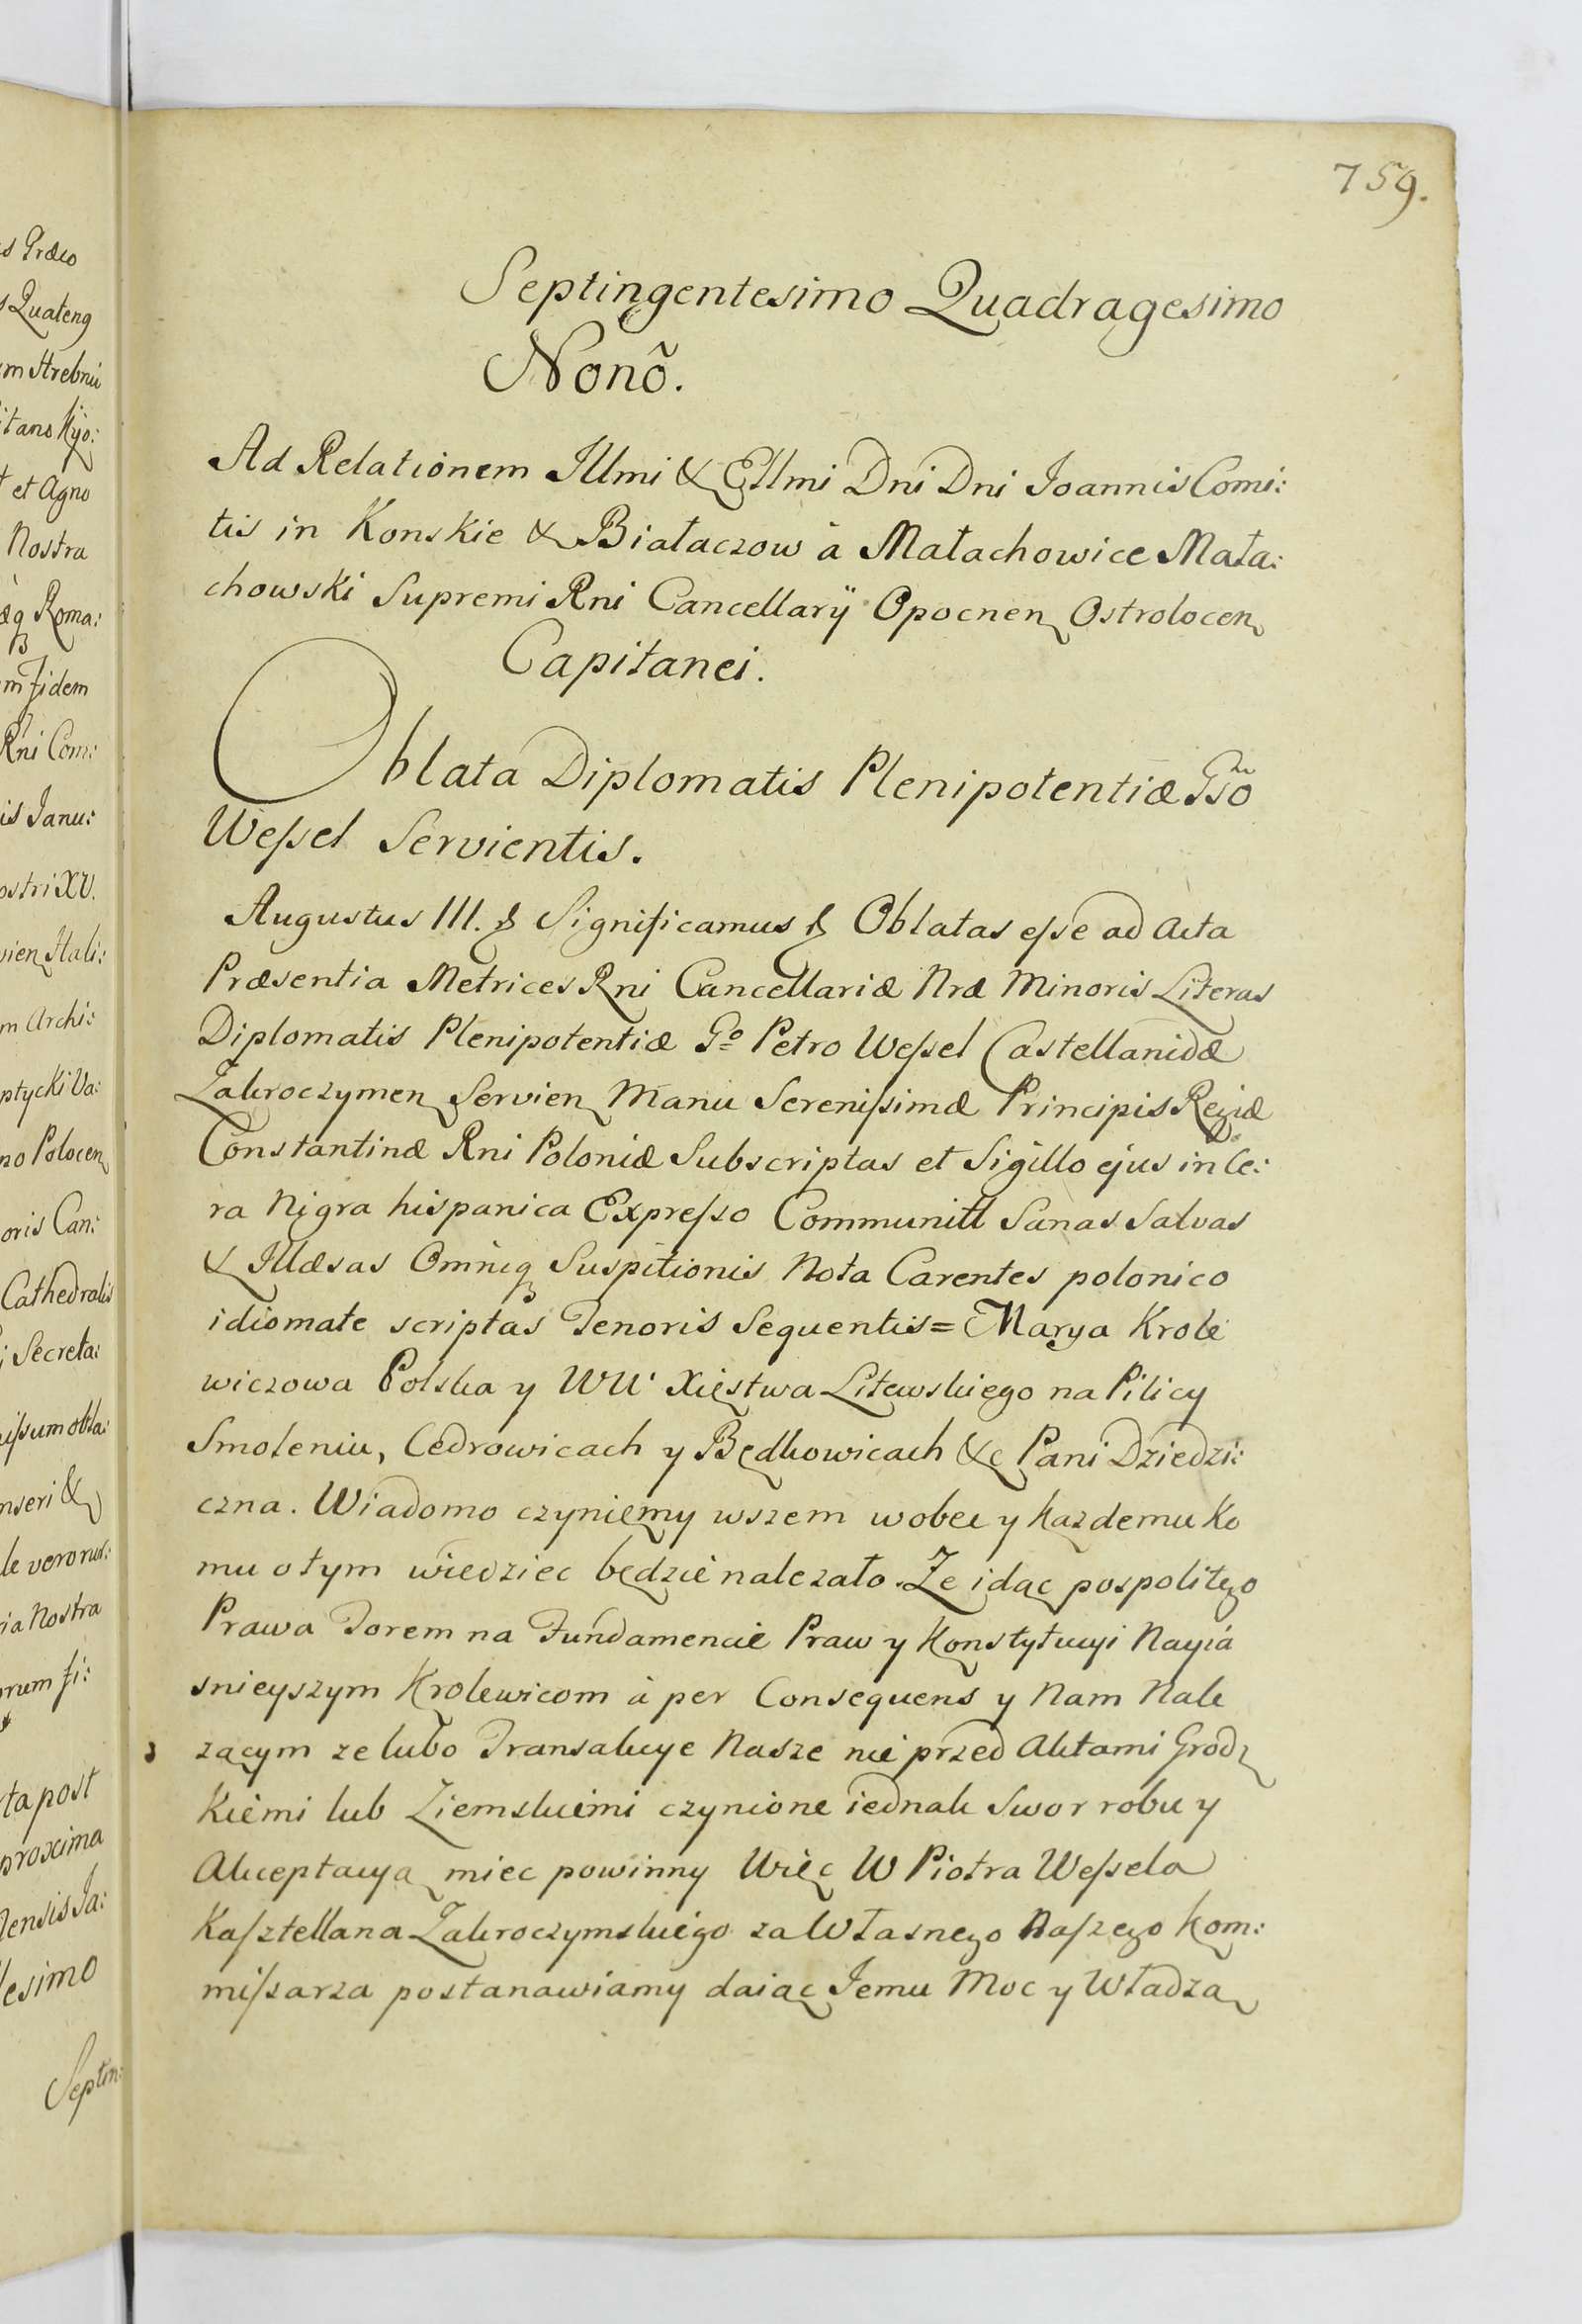 s Præco
s Quateng
m Strebnii
itano Kijo:
t et Agno
Nostra
æq Roma:
m Fidem
Rni Com:
is Janu:
ostri XV.
vien Itali:
m Archi:
ptycki Va:
no Polocen
oris Can:
Cathedralis
i Secreta:
nseri &
ia Nostra
onum fi:
ta post
proxima
lensis Ja:
lesimo
Septin:
759.
Septingentesimo Quadragesimo
Nonõ.
Ad Relationem Illmi & Ellmi Dni Dni Joannis Comi:
tis in Konskie & Białaczow à Małachowice Mała:
chowski Supremi Rni Cancellarÿ Opocnen Ostrolocen
Capitanei.
Oblata Diplomatis Plenipotentiæ Gsõ
Weſsel Servientis.
Augustus III. & Significamus & Oblatas eſse ad Acta
Præsentia Metrices Rni Cancellariæ Nræ Minoris Literas
Diplomatis Plenipotentiæ Gº Petro Weſsel Castellanidæ
Zakroczymen Servien Manu Sereniſsimæ Principis Regiæ
Constantinæ Rni Poloniæ Subscriptas et Sigillo ejus in Ce:
ra Nigra hispanica Expreſso Communitt Sanas Salvas
& Illæsas Omniq Suspitionis Nota Carentes polonico
idiomate scriptas Tenoris Sequentis = Marya Krole
wiczowa Polska y WW Xięstwa Litewskiego na Pilicy
Smoleniu, Cedrowicach y Będkowicach &c Pani Dziedzi:
czna. Wiadomo czyniemy wszem wobec y każdemu Ko
mu o tym wiedziec będzie nalezało. Ze idąc pospolitego
Prawa Torem na Fundamencie Praw y Konstytucyi Nayia
snieyszym Krolewicom à per Consequens y Nam Nale
zącym ze lubo Transakcye Nasze nie przed Aktami Grodz
Kiemi lub Ziemskiemi czynione iednak Swor robu y
Akceptacyą miec powinny Więc W Piotra Weſsela
Kaſztellana Zakroczymskiego za Własnego Naſzego Kom:
miſsarza postanawiamy daiąc Jemu Moc y Władzą